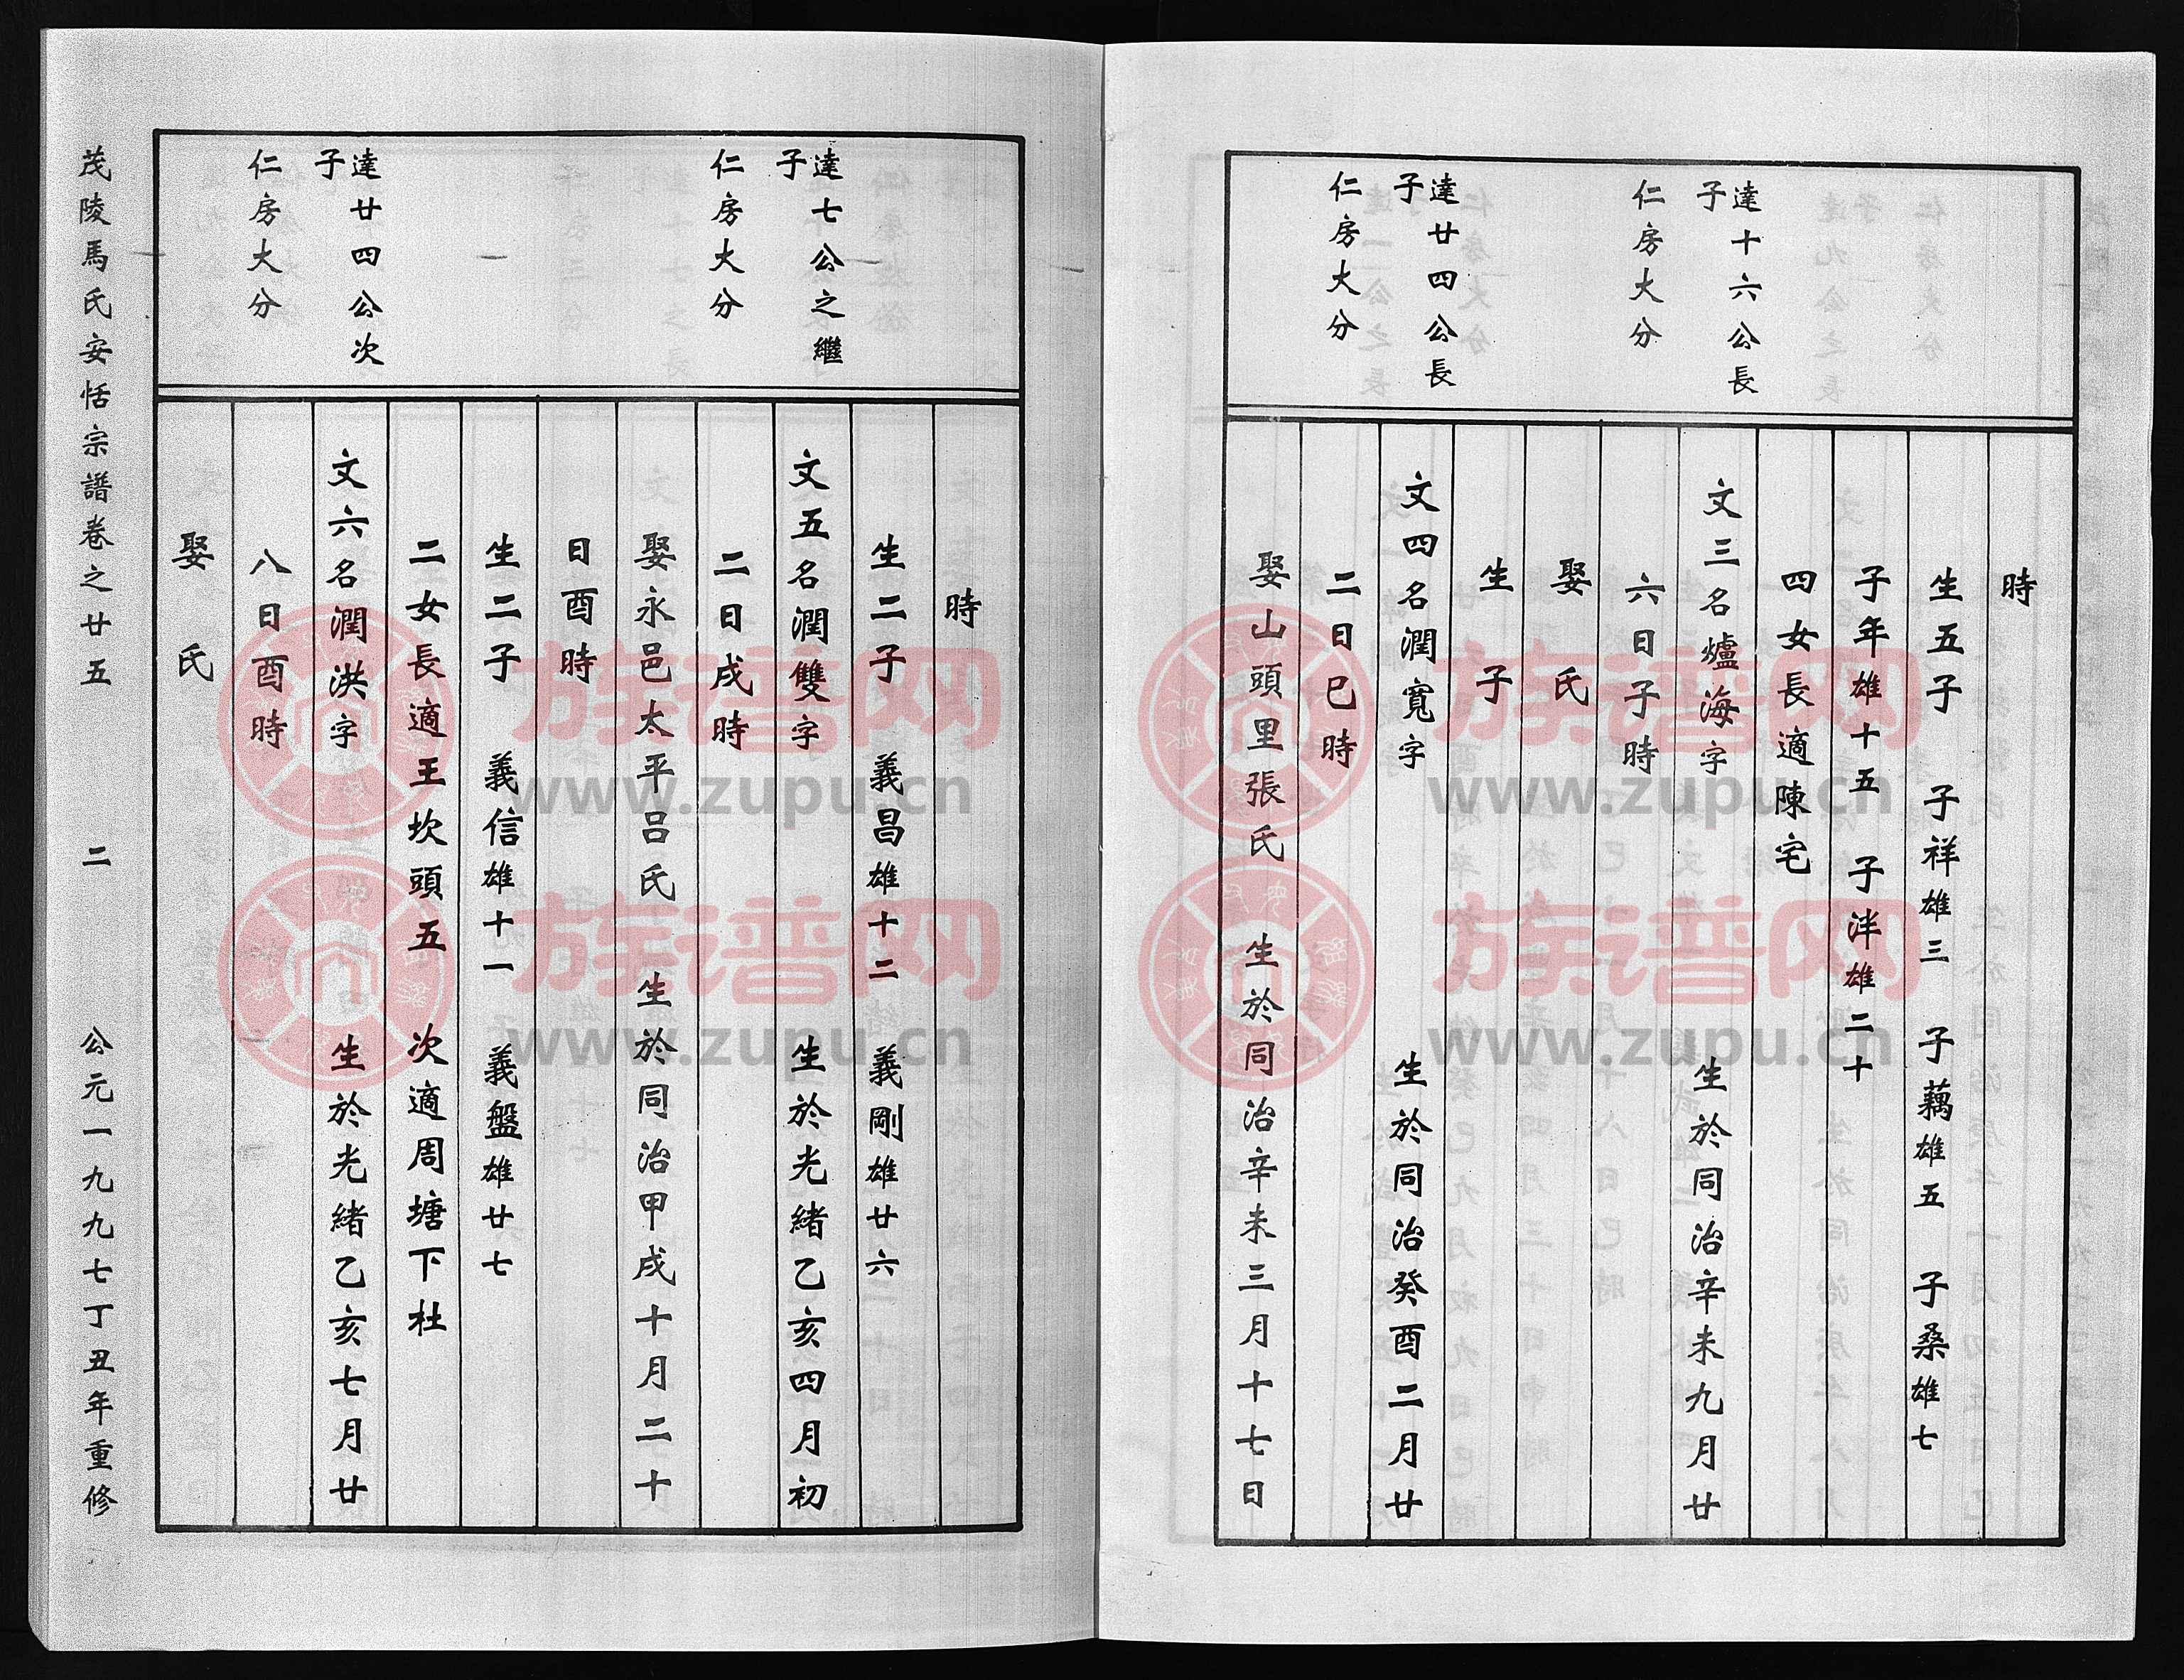 達十六公長
子
仁房大分
達廿四公長
子
仁房大分
時
生五子 子祥雄三 子藕雄五 子桑雄七
子年雄十五 子泮雄二十
四女長適陳宅
文三名爐海字 生於同治辛未九月廿
六日子時
娶 氏
生 子
文四名潤寬字 生於同治癸酉二月廿
二日巳時
娶山頭里張氏 生於同治辛未三月十七日
達七公之繼
子
仁房大分
達廿四公次
子
仁房大分
時
生二子 義昌雄十二 義剛雄廿六
文五名潤雙字 生於光緒乙亥四月初
二日戌時
娶永邑太平呂氏 生於同治甲戌十月二十
日酉時
生二子 義信雄十一 義盤雄廿七
二女長適王坎頭五 次適周塘下杜
文六名潤洪字 生於光緒乙亥七月廿
八日酉時
娶 氏
茂陵馬氏安恬宗譜卷之廿五 二 公元一九九七丁丑年重修
族谱网
www.zupu.cn
族谱网
www.zupu.cn
族谱网
www.zupu.cn
族谱网
www.zupu.cn